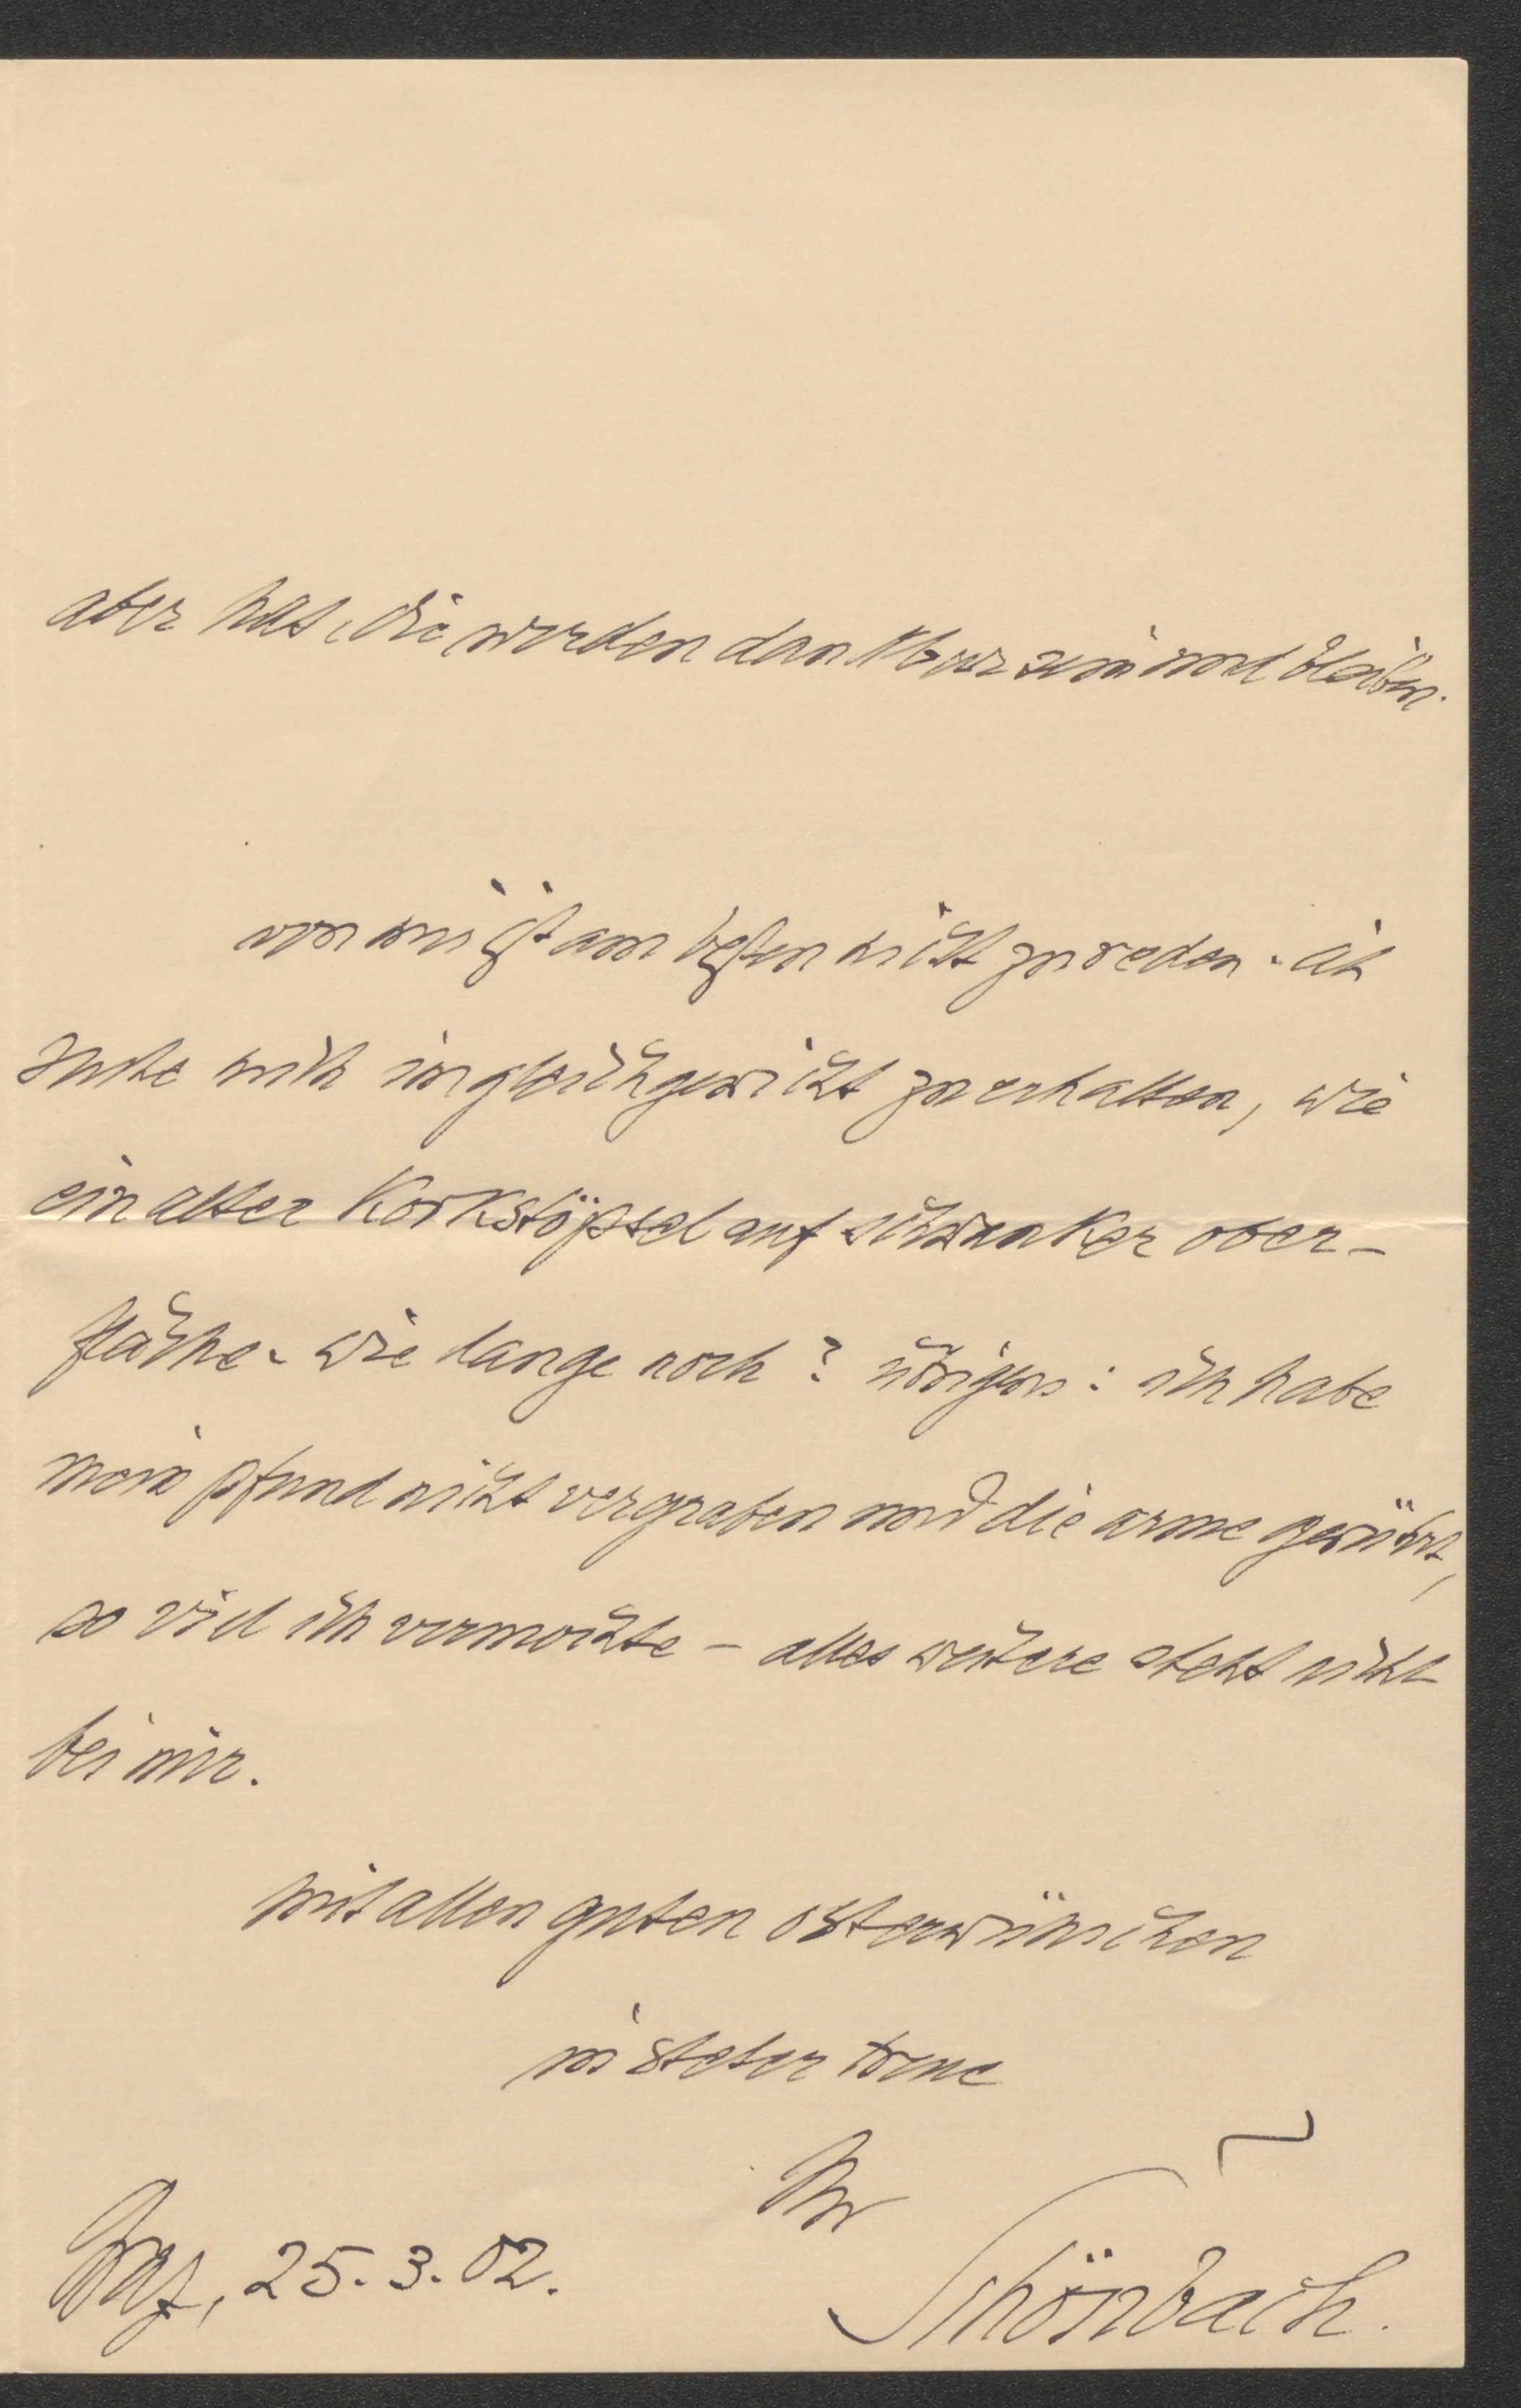 aber hat, die werden dankbar sein und bleiben.
von mir ist am besten nicht zu reden. ich
suche mich im gleichgewicht zu erhalten, wie
ein alter Korkstöpsel auf schwanker ober-
fläche. wie lange noch? übrigens: ich habe
mein pfund nicht vergraben und die arme gerührt,
so viel ich vermochte – alles weitere steht nicht
bei mir.
mit allen guten osterwünschen
in steter treue
Ihr
Schönbach.
Graz, 25.3.02.